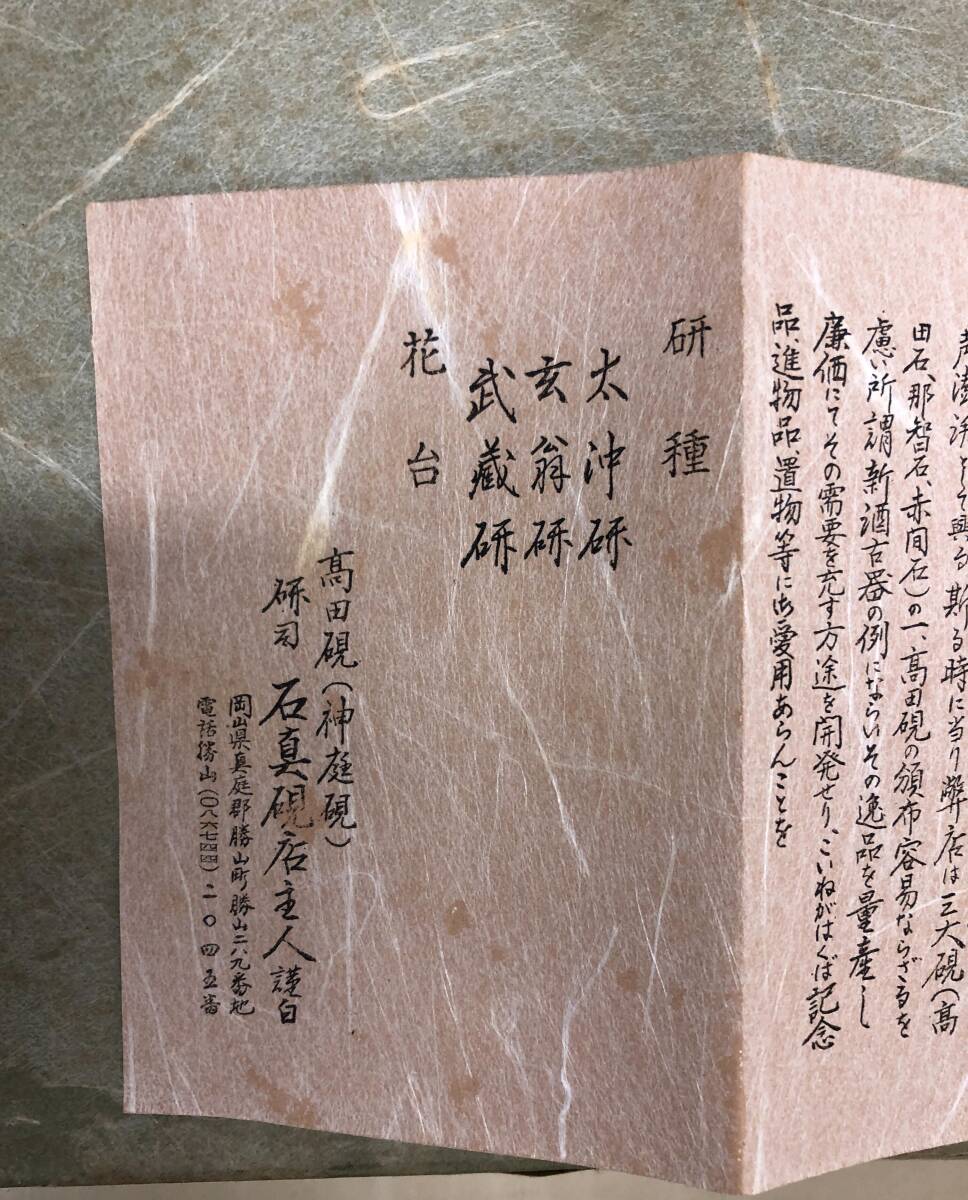 として興る斯る時に当り弊店は三大硯(高
田石、那智石、赤間石)の一、高田硯の頒布容易ならざるを
慮い所謂新酒古器の例にならいその逸品を量産し
廉価にてその需要を充す方途を開発せり、こいねがはくば記念
品、進物品、置物等に御愛用あらんことを
研種
太沖研
玄翁研
武蔵研
花台
高田硯(神庭硯)
研司 石真硯店主人 謹白
岡山県真庭郡勝山町勝山二八九番地
電話勝山(〇八六七四四)二〇四五番